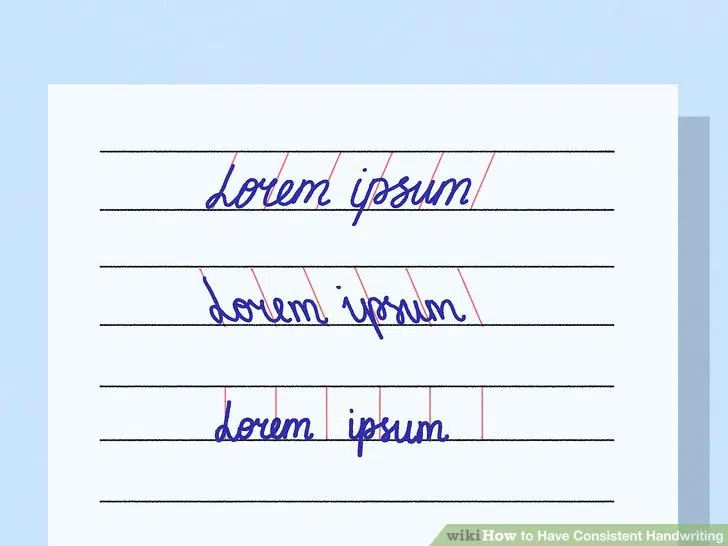 Lorem ipsum
Lorem ipsum
Lorem ipsum
wikiHow to Have Consistent Handwriting